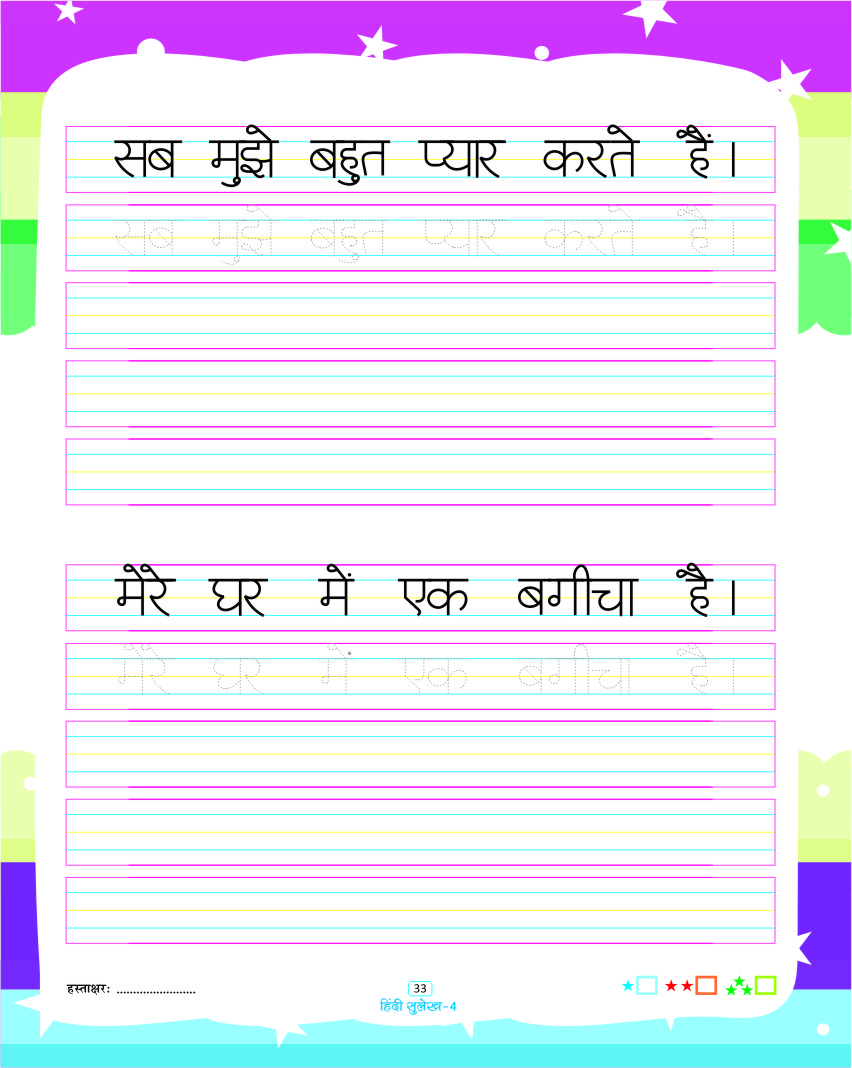 सब मुझे बहुत प्यार करते हैं।
सब मुझे बहुत प्यार करते हैं।
मेरे घर में एक बगीचा है।
मेरे घर में एक बगीचा है।
हस्ताक्षरः ........................
33
हिंदी सुलेख-4